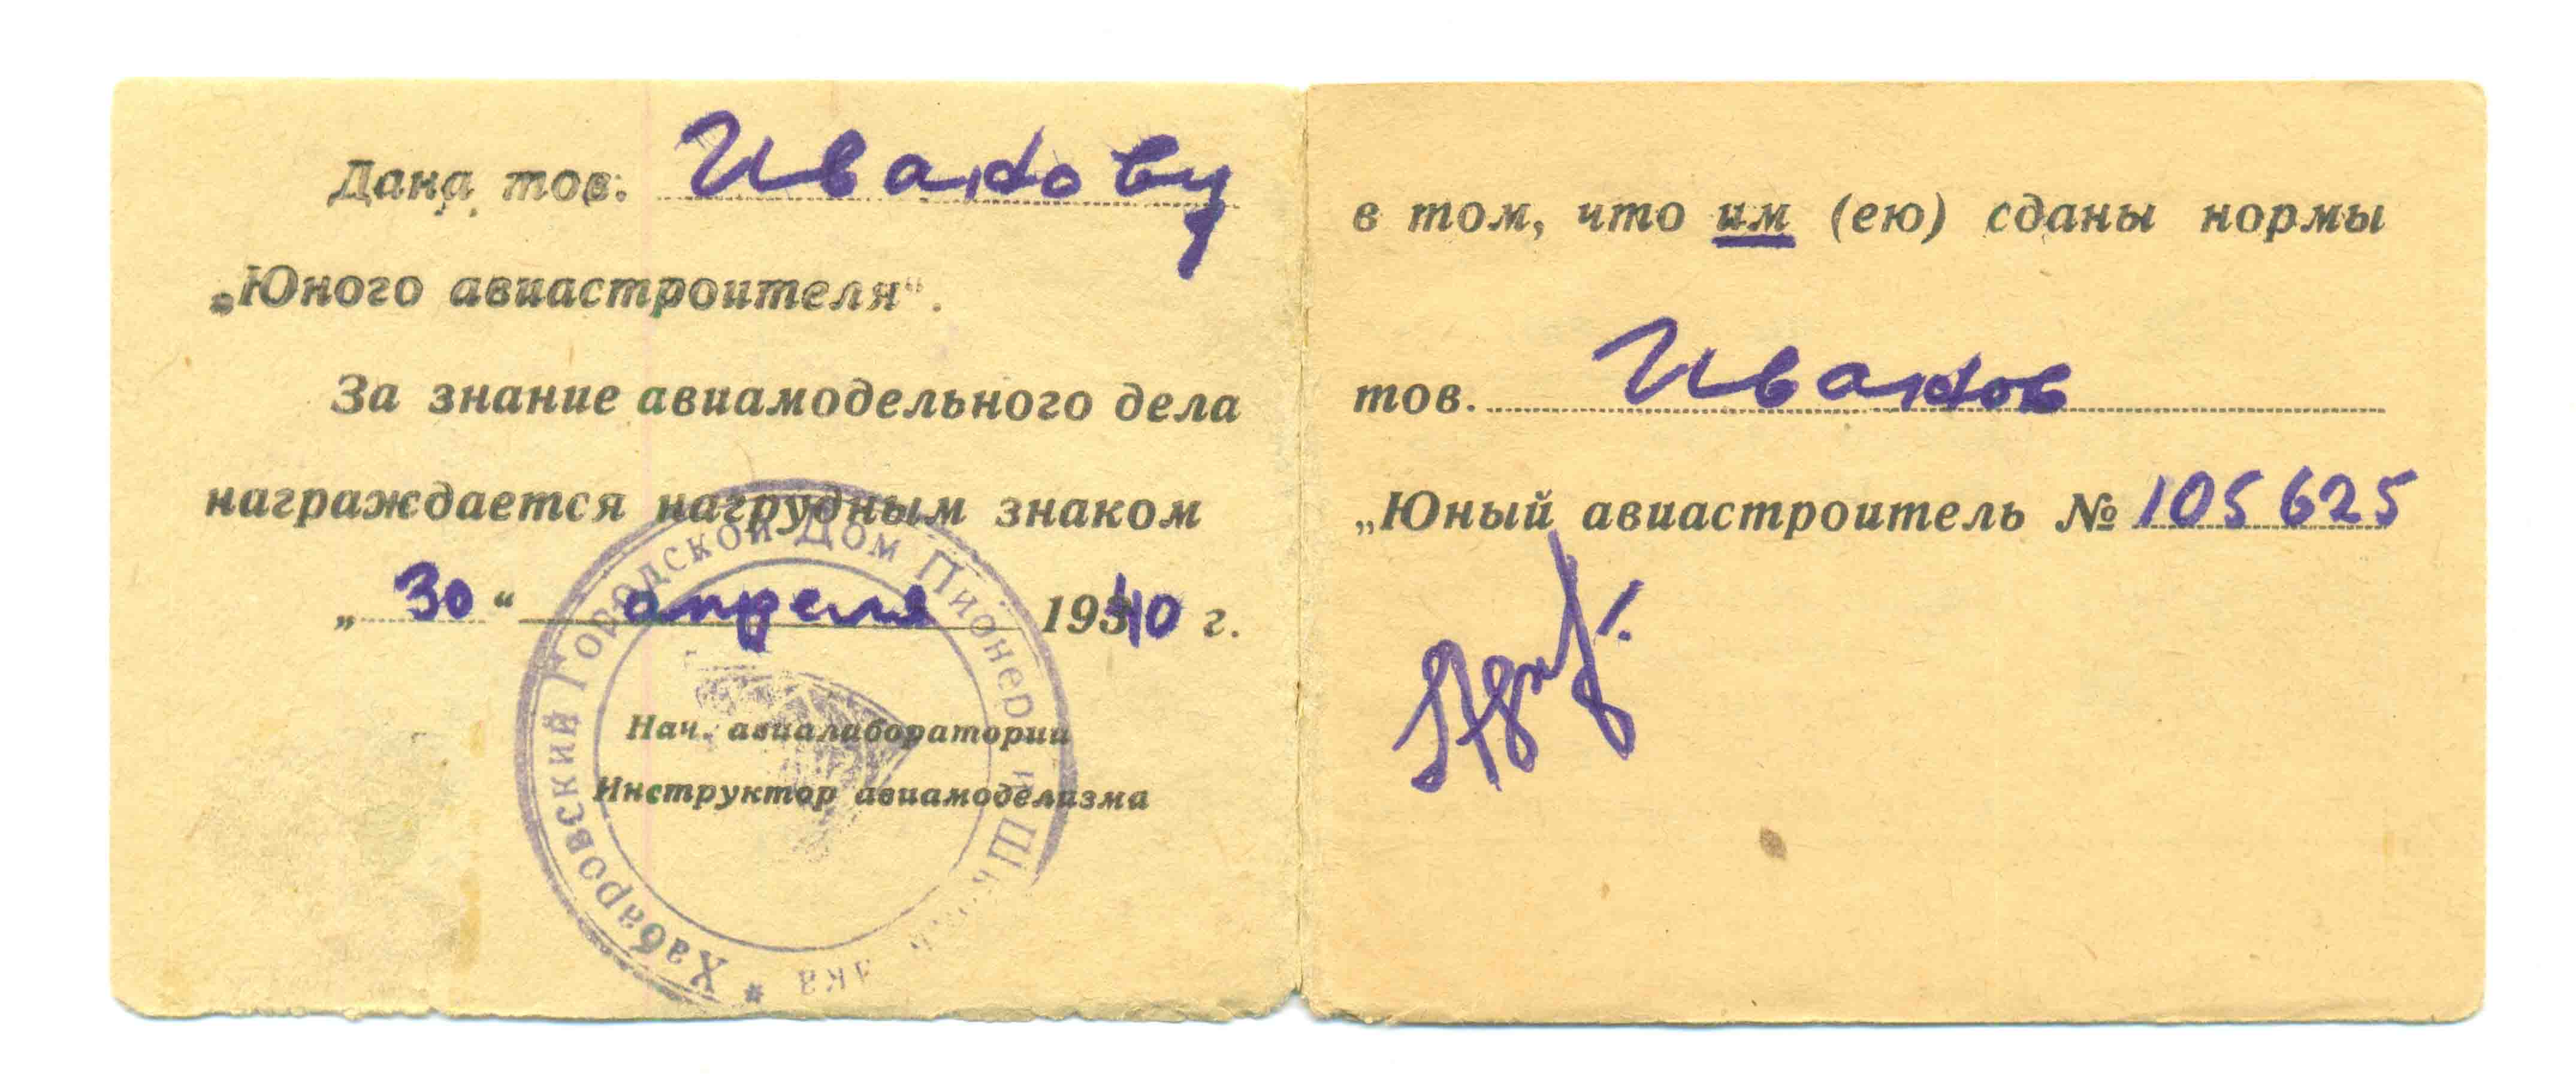 Дана тов. Иванову
в том, что им (ею) сданы нормы
„Юного авиастроителя“.
За знание авиамодельного дела
тов. Иванов
награждается нагрудным знаком
„Юный авиастроитель № 105625
„30“ апреля 1940 г.
Нач. авиалаборатории
Инструктор авиамоделизма
Хабаровский Городской Дом Пионер и